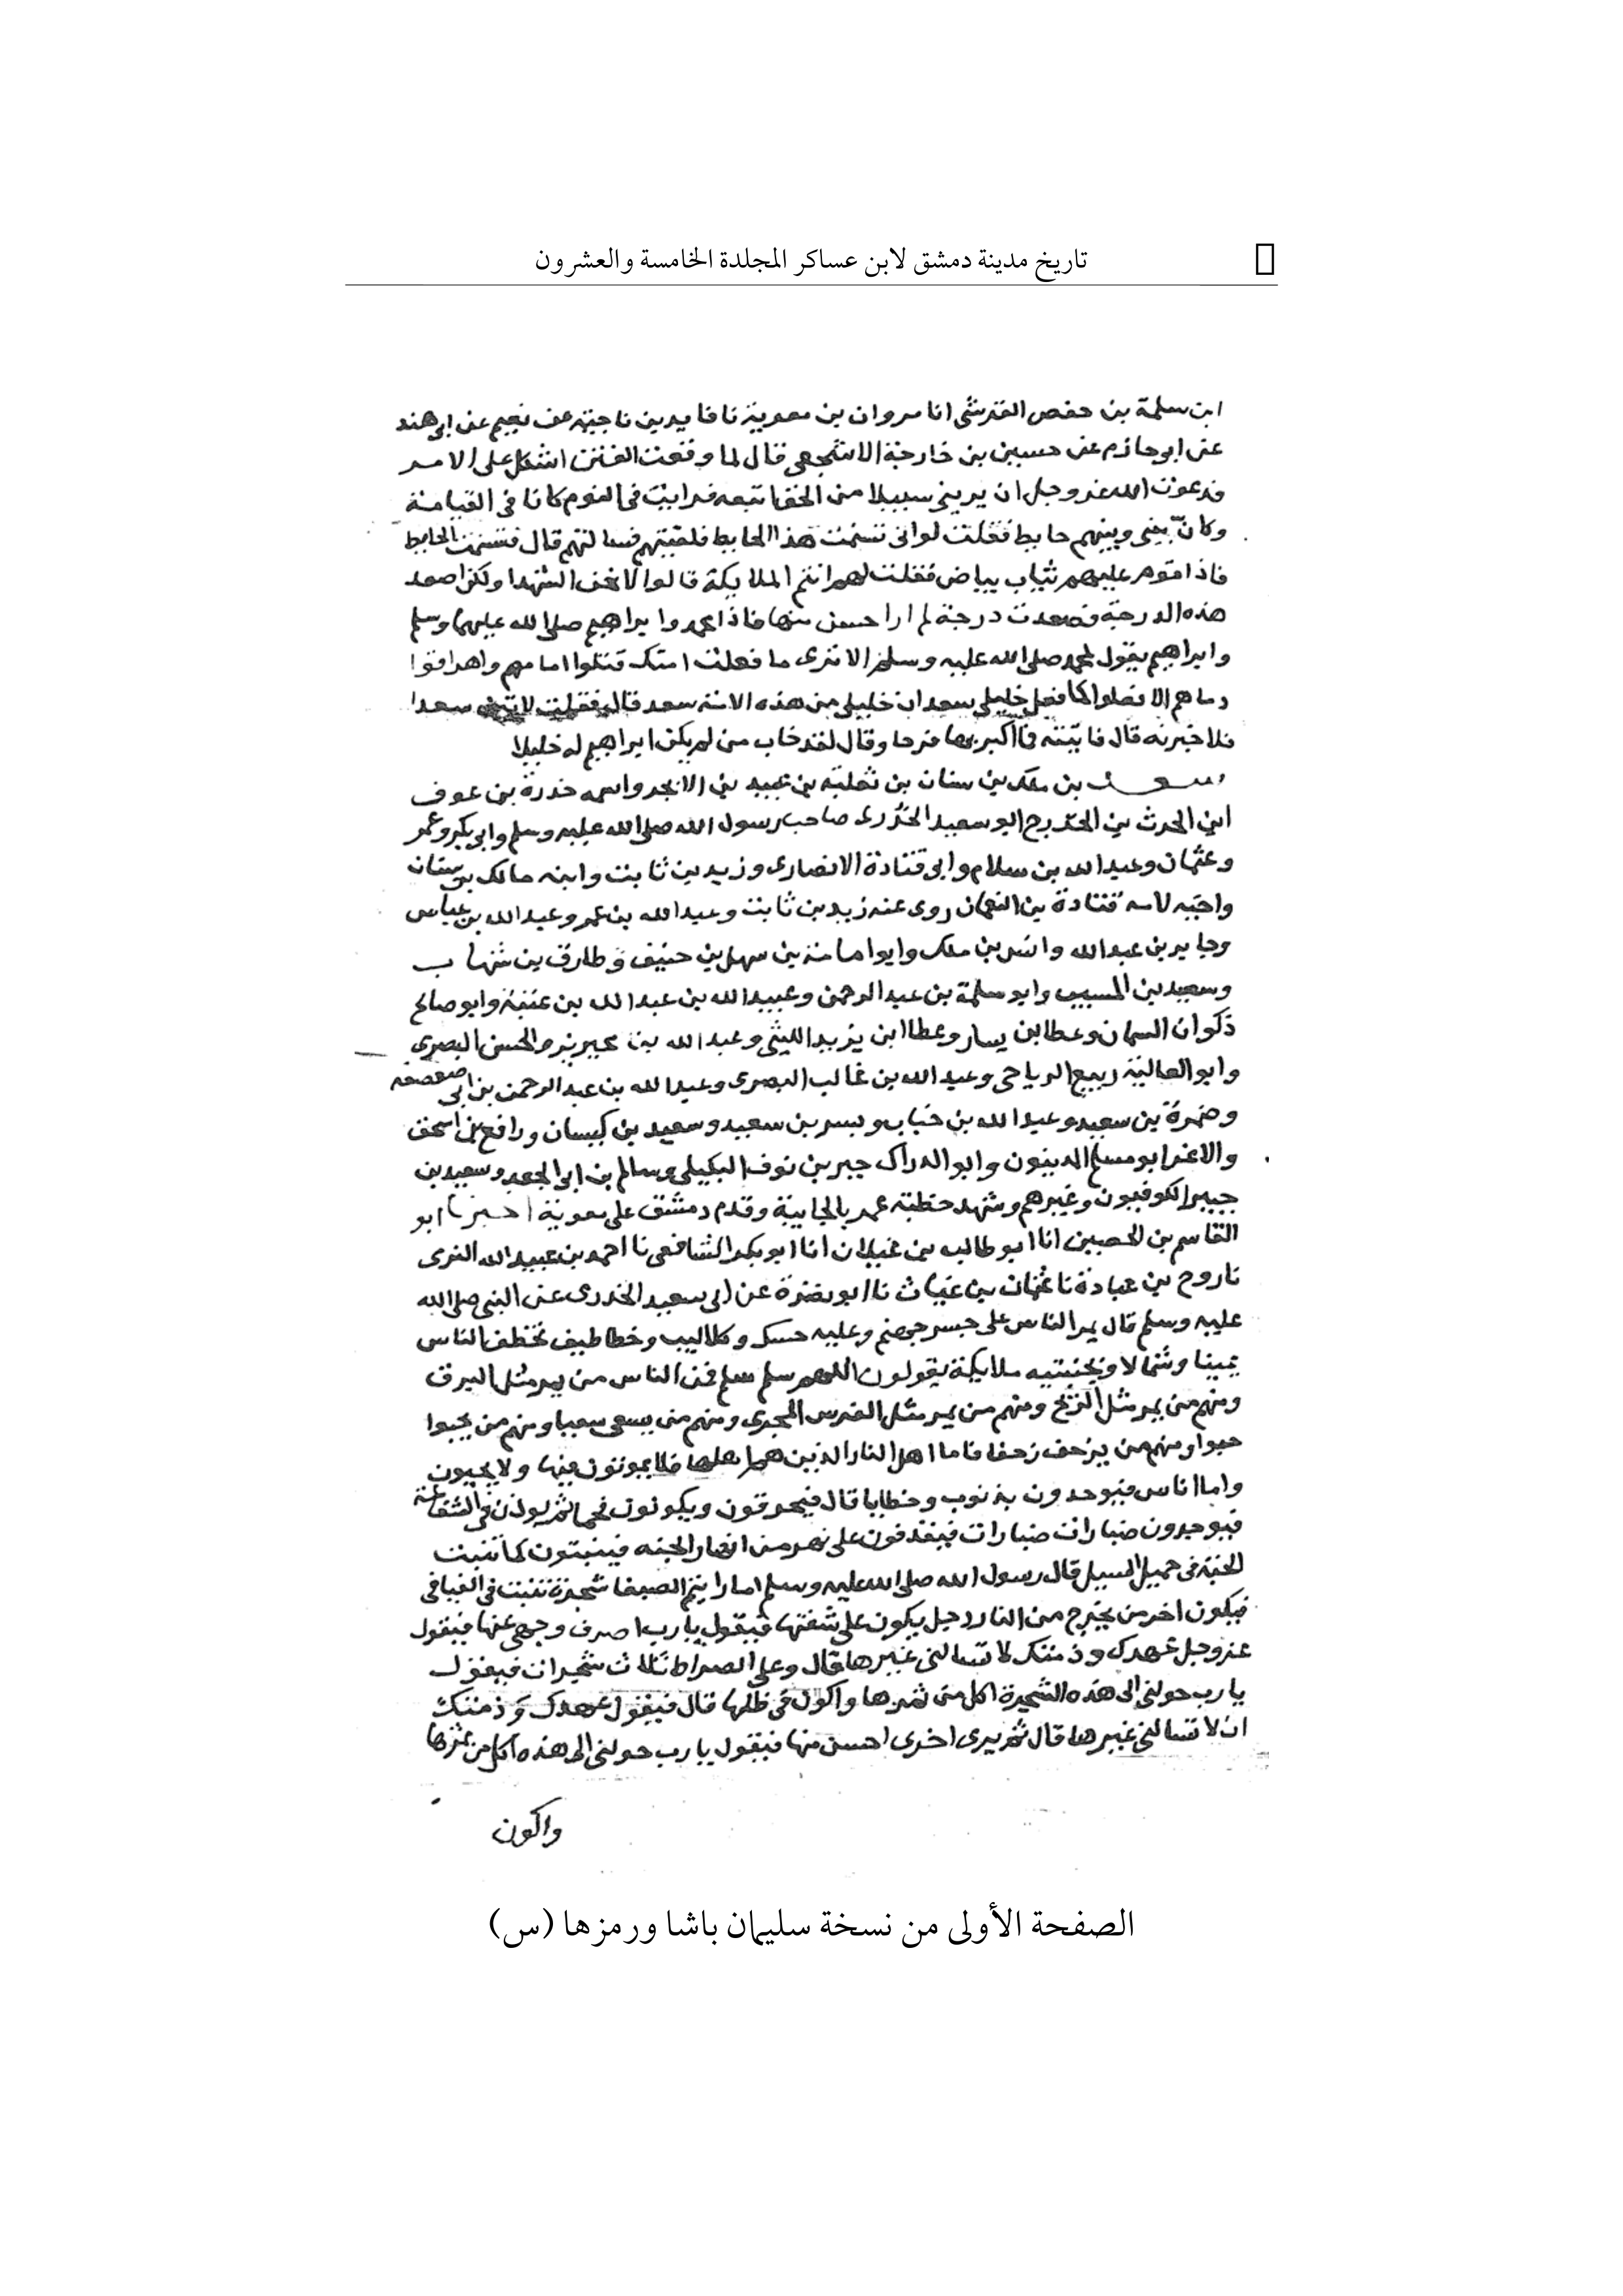 تاريخ مدينة دمشق لابن عساكر المجلدة الخامسة والعشرون
ابن سلمة بن حفص القرشى انا مروان بن معوية نا قايد بن ناجية عن نعيم عن ابى هند
عن ابو حازم عن حسين بن خارجة الاشجعى قال لما وقعت الفتن اشكل على الامر
فدعوت الله عز وجل ان يرينى سبيلا من الحق اتبعه فرايت فى النوم كانا فى القيامة
وكان بينى وبينهم حايط فقلت لو انى تسنمت هذا الحايط فلقيتهم فسالتهم قال فتسنمت الحايط
فاذا قوم عليهم ثياب بياض فقلت لهم انتم الملايكة قالوا لا نحن الشهدا ولكن اصعد
هذه الدرجة فصعدت درجة لم ار احسن منها فاذا محمد وابراهيم صلى الله عليهما وسلم
وابراهيم يقول لمحمد صلى الله عليه وسلم الا ترى ما فعلت امتك قتلوا امامهم واهراقوا
دماهم الا فعلوا كما فعل خليلى سعد ان خليلى من هذه الامة سعد قال فقلت لاتين سعدا
فلاخبرنه قال فاتيته فما اكبر بها فرحا وقال لقد خاب من لم يكن ابراهيم له خليلا
سعد بن ملك بن سنان بن ثعلبة بن عبيد بن الابجر واسمه خدرة بن عوف
ابن الحرث بن الخزرج ابو سعيد الخدرى صاحب رسول الله صلى الله عليه وسلم وابى بكر وعمر
وعثمان وعبد الله بن سلام وابى قتادة الانصارى وزيد بن ثابت وابنه مالك بن سنان
واخيه لامه قتادة بن النعمان روى عنه زيد بن ثابت وعبد الله بن عمر وعبد الله بن عباس
وجابر بن عبد الله وانس بن ملك وابو امامة بن سهل بن حنيف وطارق بن شهاب
وسعيد بن المسيب وابو سلمة بن عبد الرحمن وعبيد الله بن عبد الله بن عتبة وابو صالح
ذكوان السمان وعطا بن يسار وعطا ابن يزيد الليثى وعبد الله بن محيريز والحسن البصرى
وابو العالية ربيع الرياحى وعبد الله بن غالب البصرى وعبد الله بن عبد الرحمن بن ابى صعصعه
وضمرة بن سعيد وعبد الله بن خباب وبسر بن سعيد وسعيد بن كيسان ورافع بن اسحق
والاغر ابو مسلم المدينون وابو الدراك جبر بن نوف البكيلى وسالم بن ابى الجعد وسعيد بن
جبير الكوفيون وغيرهم وشهد خطبة عمر بالجابية وقدم دمشق على معوية اخبرنا ابو
القاسم بن الحصين انا ابو طالب بن غيلان انا ابو بكر الشافعى نا احمد بن عبيد الله النرى
نا روح بن عبادة نا عثمان بن غياث نا ابو نضرة عن ابى سعيد الخدرى عن النبى صلى الله
عليه وسلم قال يمر الناس على جسر جهنم وعليه حسك وكلاليب وخطاطيف تخطف الناس
يمينا وشمالا وبجنبتيه ملايكة يقولون اللهم سلم سلم فمن الناس من يمر مثل البرق
ومنهم من يمر مثل الريح ومنهم من يمر مثل الفرس المجرى ومنهم من يسعى سعيا ومنهم من يحبوا
حبوا ومنهم من يزحف زحفا فاما اهل النار الذين هم اهلها فلا يموتون فيها ولا يحيون
واما اناس فيوخدون بذنوب وخطايا قال فيحرقون ويكونون فحما ثم يوذن فى الشفاعة
فيوخدون ضبارات ضبارات فيقذفون على نهر من انهار الجنه فينبتون كما تنبت
الحبة فى حميل السيل قال رسول الله صلى الله عليه وسلم اما رايتم الصبغا شجرة تنبت فى الفيافى
فيكون اخر من يخرج من النار رجل يكون على شفتها فيقول يا رب اصرف وجهى عنها فيقول
عز وجل عهدك وذمتك لا تسالنى غيرها قال وعلى الصراط ثلاث شجرات فيقول
يا رب حولنى الى هذه الشجرة اكل من ثمرها واكون فى ظلها قال فيقول عهدك وذمتك
ان لا تسالنى غيرها قال ثم يرى اخرى احسن منها فيقول يا رب حولنى الى هذه اكل من ثمرها
واكون
الصفحة الأولى من نسخة سليمان باشا ورمزها (س)